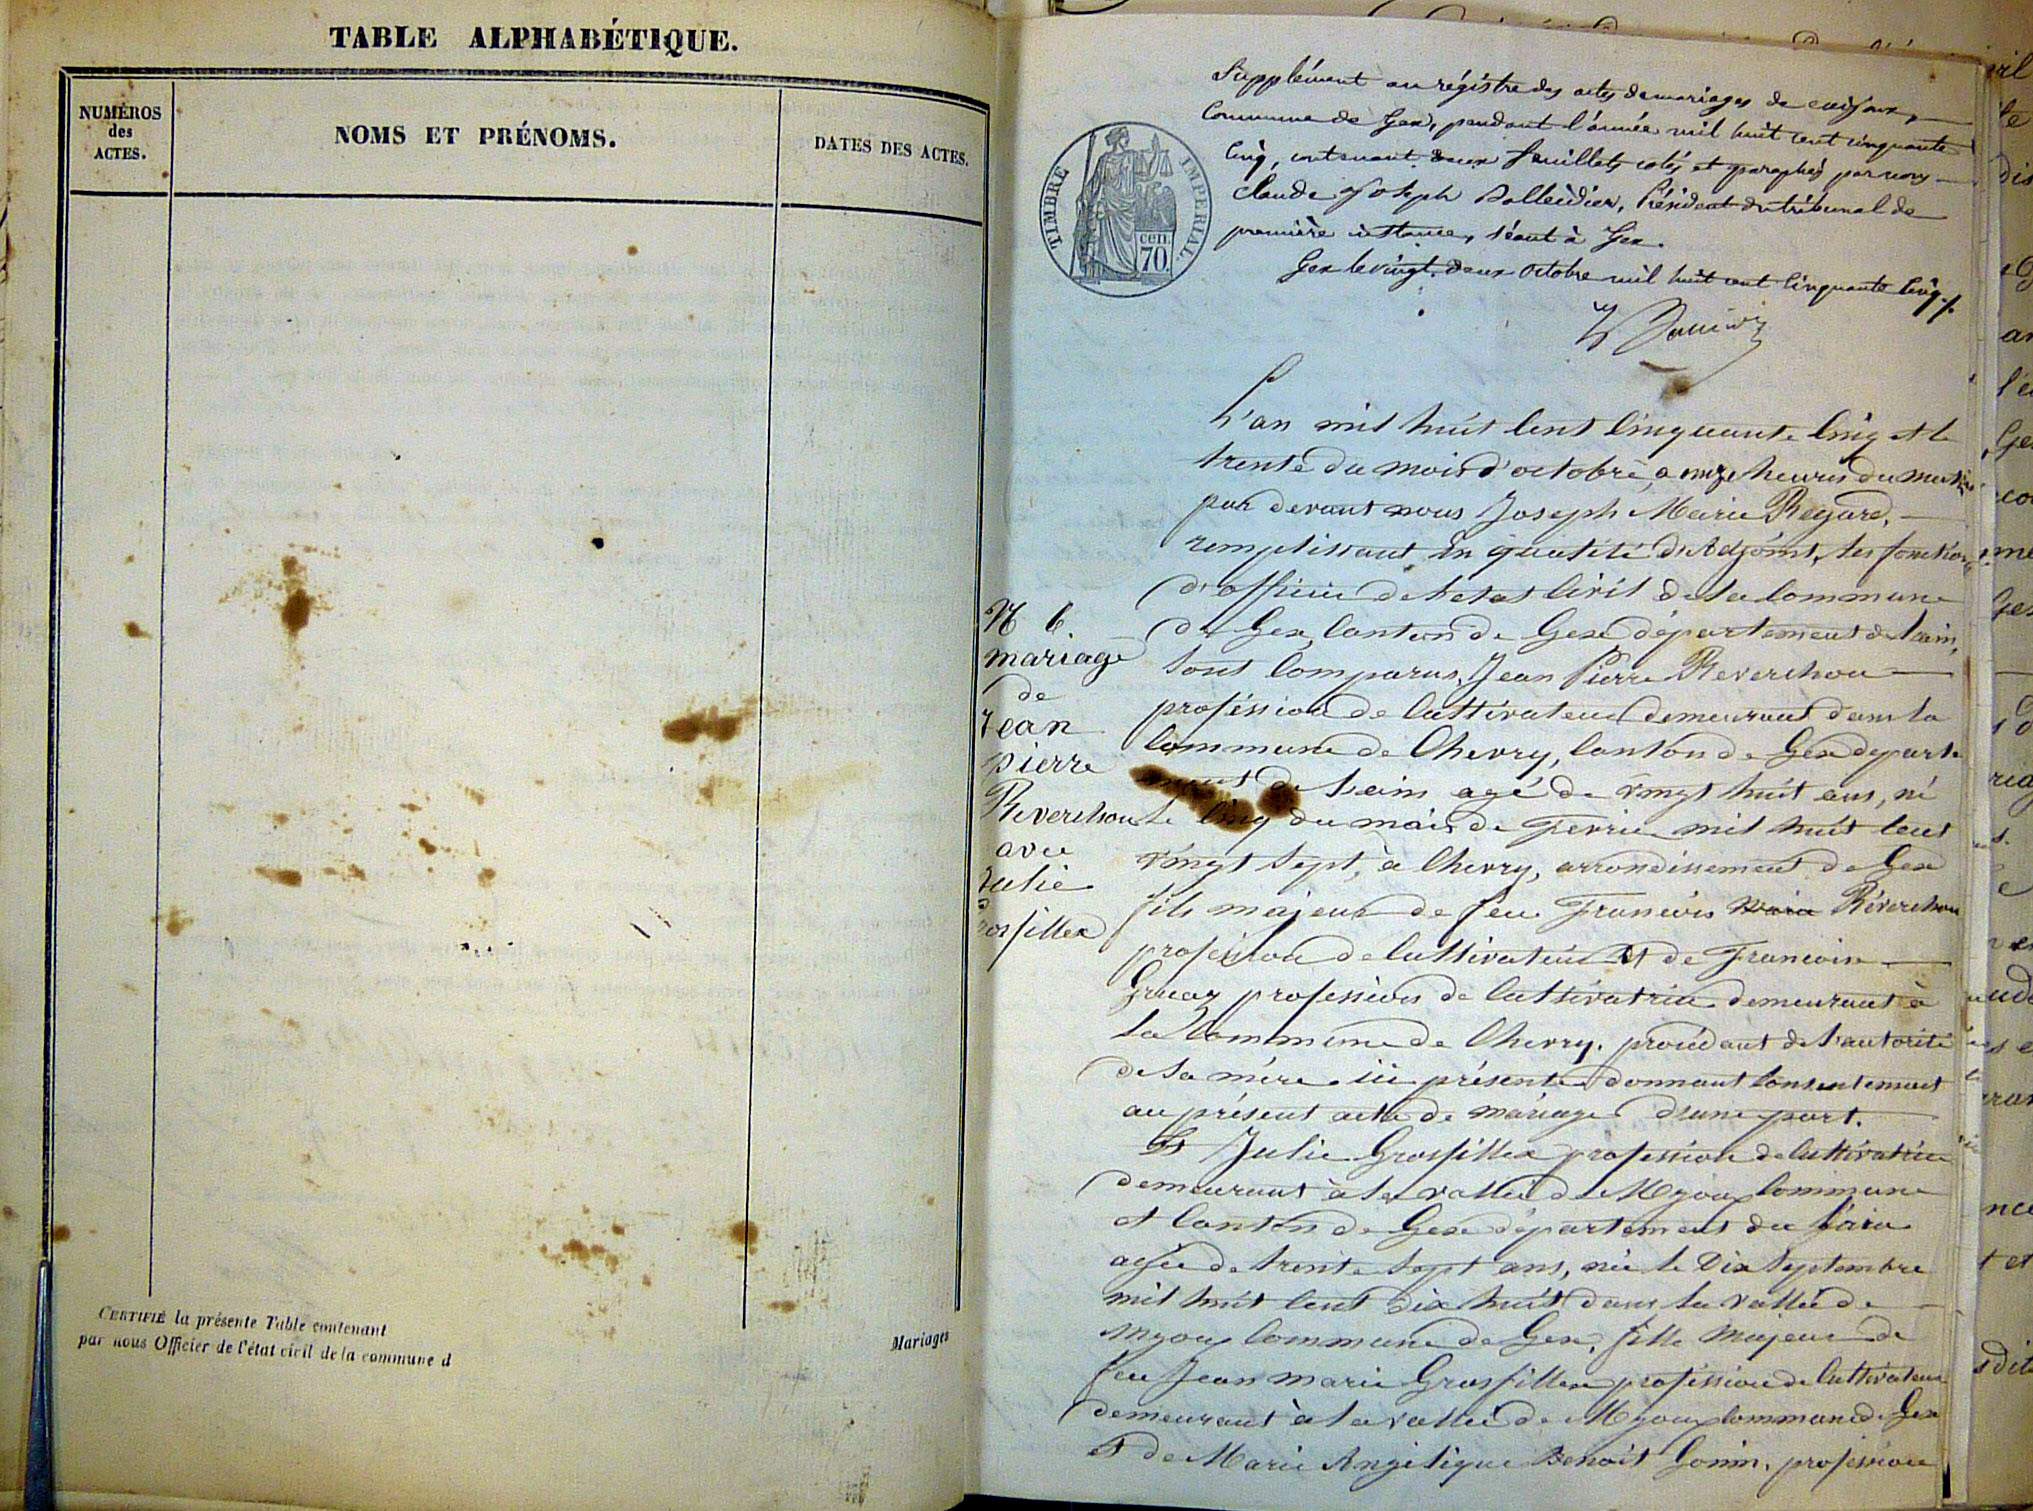 TABLE ALPHABÉTIQUE.
NUMÉROS
des
ACTES.
NOMS ET PRÉNOMS.
DATES DES ACTES.
CERTIFIÉ la présente Table contenant
par nous Officier de l'état civil de la commune d
Mariages
Supplément au régistre des actes de mariages de
Commune de Gex, pendant l'année mil huit cent cinquante
Cinq, contenant deux feuillets cotés et paraphés par nous
Claude Joseph Balleidier, Président du tribunal de
première instance, séant à Gex.
Gex le vingt deux Octobre mil huit cent Cinquante Cinq
TIMBRE IMPERIAL
CEN.
70
L'an mil huit Cent Cinquante Cinq et le
trente du mois d'octobre, a onze heures du matin
par devant nous Joseph Marie Regard,
remplissant en qualité d'Adjoint, les fonctions
d'officier de l'etat Civil de la Commune
de Gex, Canton de Gex département de l'ain,
Sont Comparus, Jean Pierre Reverchon
proféssion de Cultivateur demeurant dans la
Commune de Chevry, Canton de Gex départe
ment de l'ain agé de vingt huit ans, né
le Cinq du mois de Fevrier mil huit Cent
vingt Sept, à Chevry, arrondissement de Gex
fils majeur de feu Francois Reverchon
profession de Cultivateur Et de Francoise
Gruaz profession de Cultivatrice demeurant à
la Commune de Chevry. procédant de l'autorité
de Sa mère ici présente donnant Consentement
au présent acte de mariage d'une part.
Et Julie Grosfillex profession de Cultivatrice
demeurant à la vallée de Mijoux Commune
et Canton de Gex département de l'ain
agée de trente Sept ans, née le Dix Septembre
mil huit Cent dix huit dans la vallée de
Mijoux Commune de Gex, fille majeure de
feu Jean marie Grosfillex profession de Cultivateur
demeurant à la vallée de Mijoux Commune de Gex
et de Marie Angélique Benoit Gonin, profession
N 6.
mariage
de
Jean
pierre
Reverchon
avec
Julie
Grosfillex